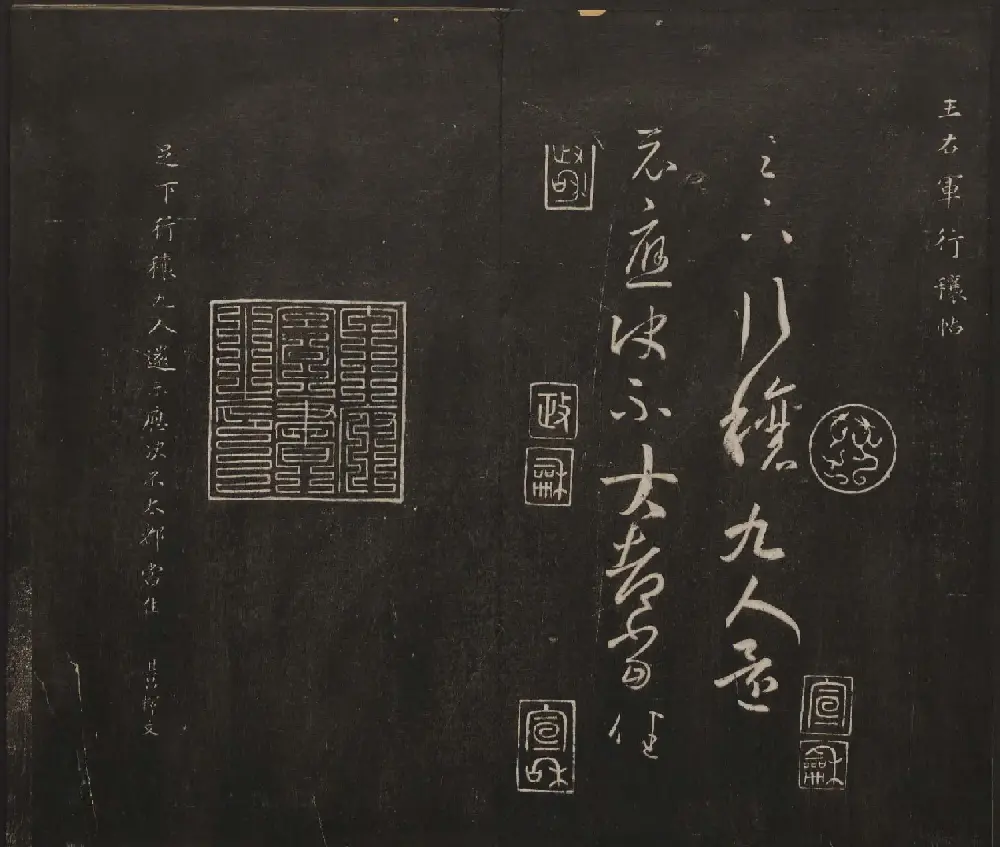 王右軍行穰帖
足下行穰九人還
示應決不大都當佳
政和
政
龢
宣
龢
宣和
足下行穰九人還示應決不大都當佳
其昌釋文